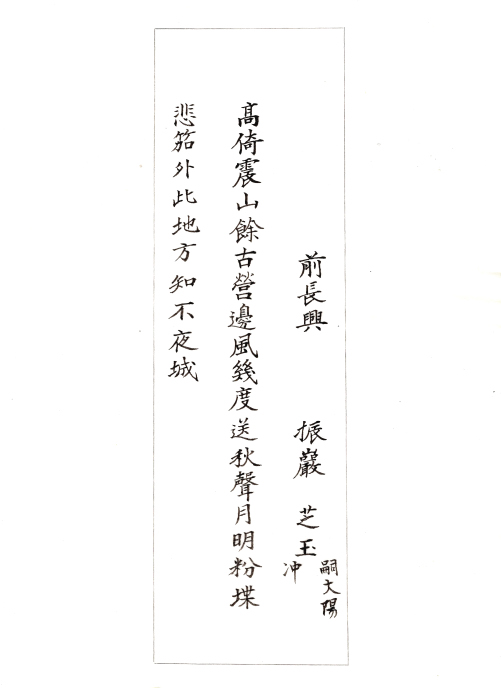 前長興 振巖 芝玉
嗣大陽
冲
高倚震山餘古營邊風幾度送秋聲月明粉堞
悲笳外此地方知不夜城